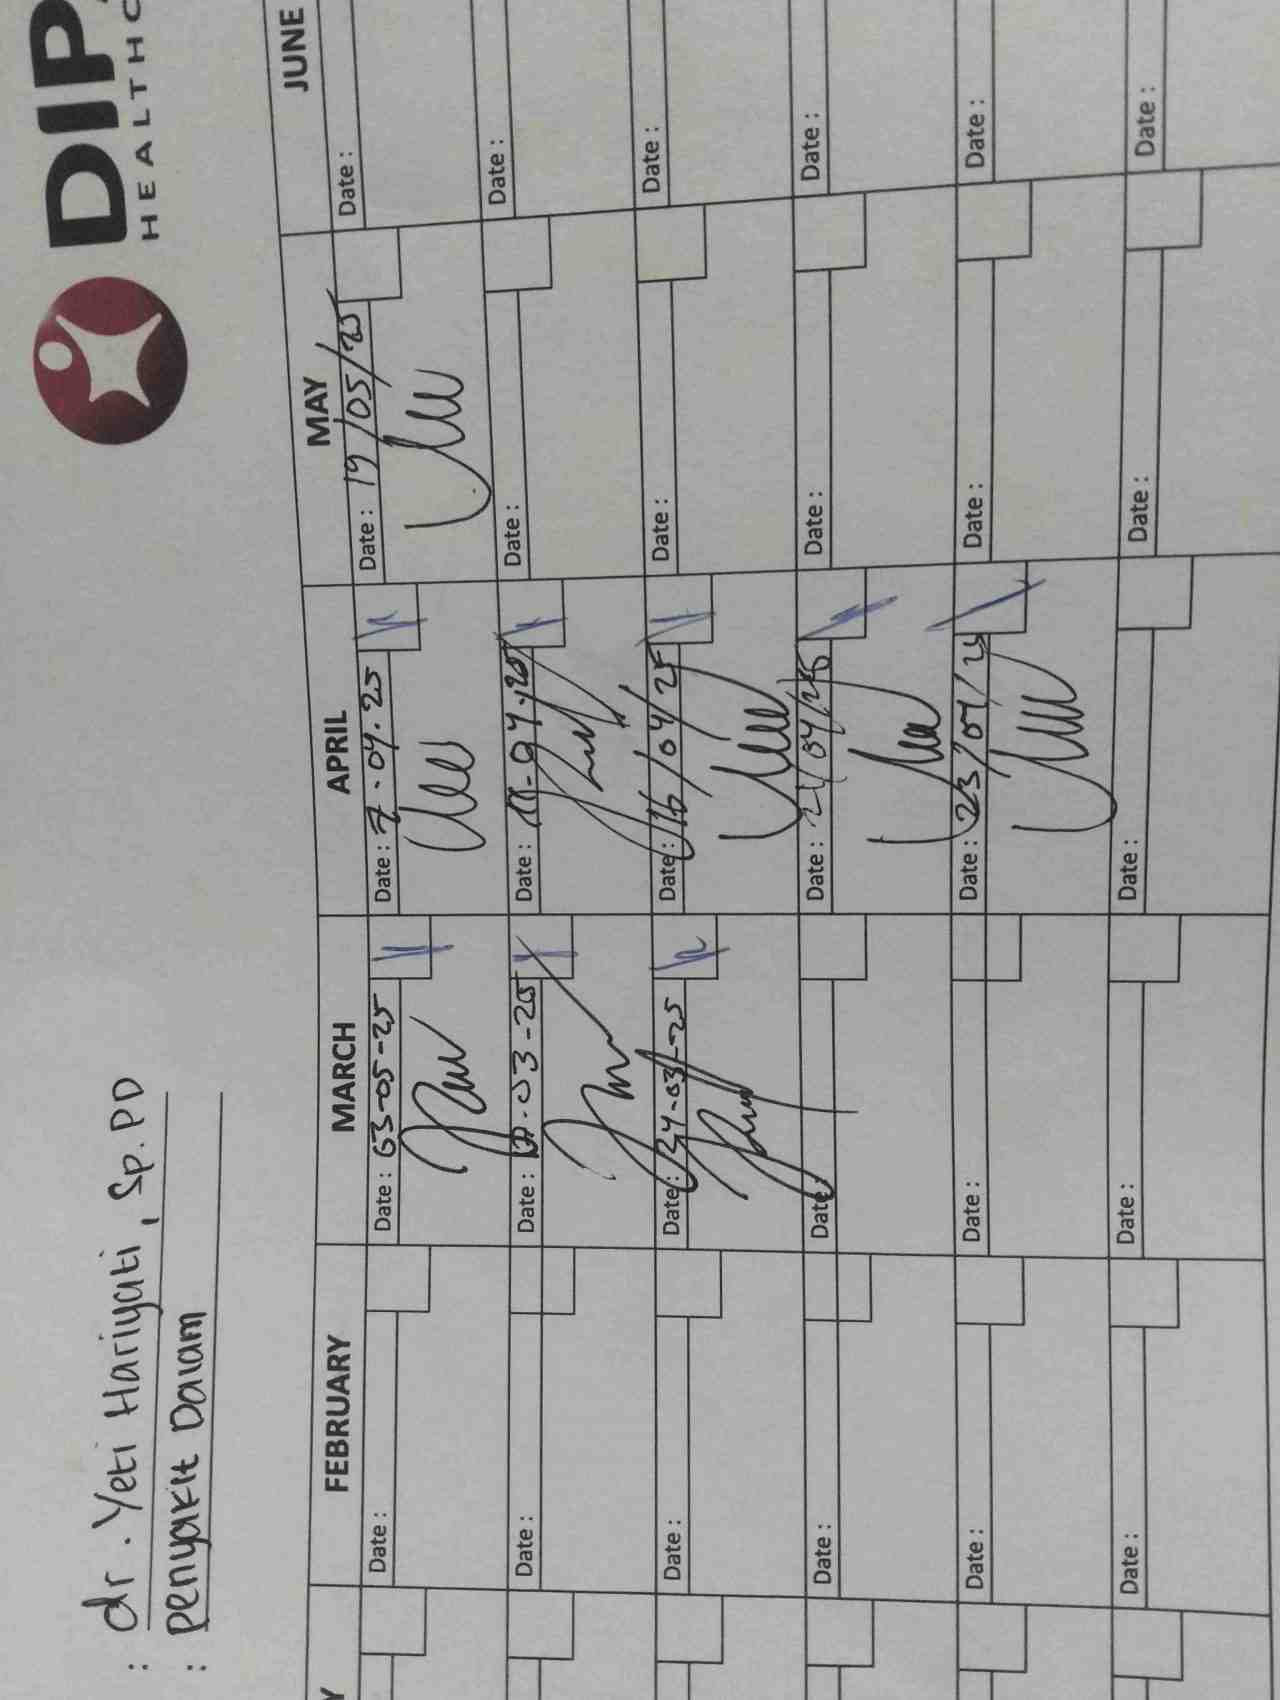 : dr. Yeti Hariyati, Sp.PD
: Penyakit Dalam
DIP
HEALTHC
Y FEBRUARY MARCH APRIL MAY JUNE
Date : Date : 03-05-25 Date : 7.04.25 Date : 19/05/25 Date :
Date : Date : -03-25 Date : -04-25 Date : Date :
Date : Date : 24-03-25 Date : 16/04/25 Date : Date :
Date : Date : Date : 21/04/25 Date : Date :
Date : Date : Date : 23/04/25 Date : Date :
Date : Date : Date : Date : Date :